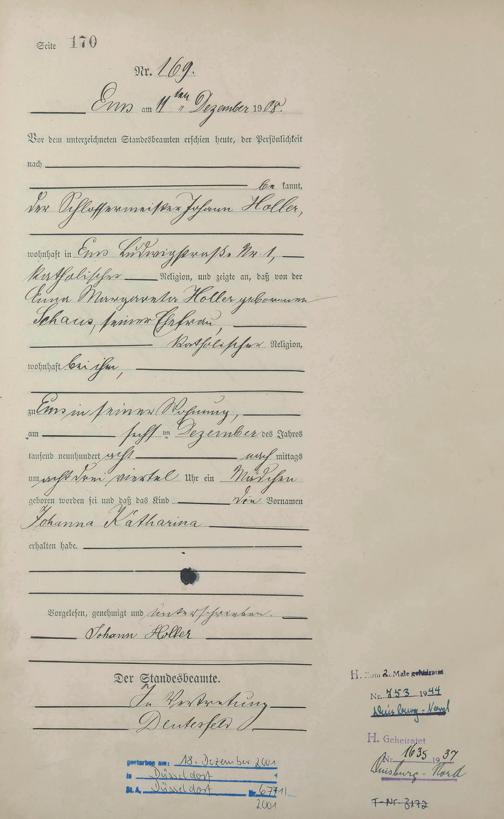 Seite 170
Nr. 169.
Ems am 11ten Dezember 1908.
Vor dem unterzeichneten Standesbeamten erschien heute, der Persönlichkeit
nach
be kannt,
der Schlossermeister Johann Holler,
wohnhaft in Ems Ludwigstraße Nr 1,
katholischer Religion, und zeigte an, daß von der
Anna Margareta Holler geborenen
Schaus, seiner Ehefrau,
katholischer Religion,
wohnhaft bei ihm,
zu Ems in seiner Wohnung,
am sechsten Dezember des Jahres
tausend neunhundert acht nach mittags
um acht drei viertel Uhr ein Mädchen
geboren worden sei und daß das Kind die Vornamen
Johanna Katharina
erhalten habe.
Vorgelesen, genehmigt und unterschrieben.
Johann Holler
Der Standesbeamte.
In Vertretung
H. Zum 2. Male geheiratet
Nr. 753 1944
Duisburg-Nord
H. Geheiratet
Nr. 1635 1937
Duisburg-Nord
gestorben am: 18. Dezember 2001
in Düsseldorf
St.A. Düsseldorf Nr.
2001